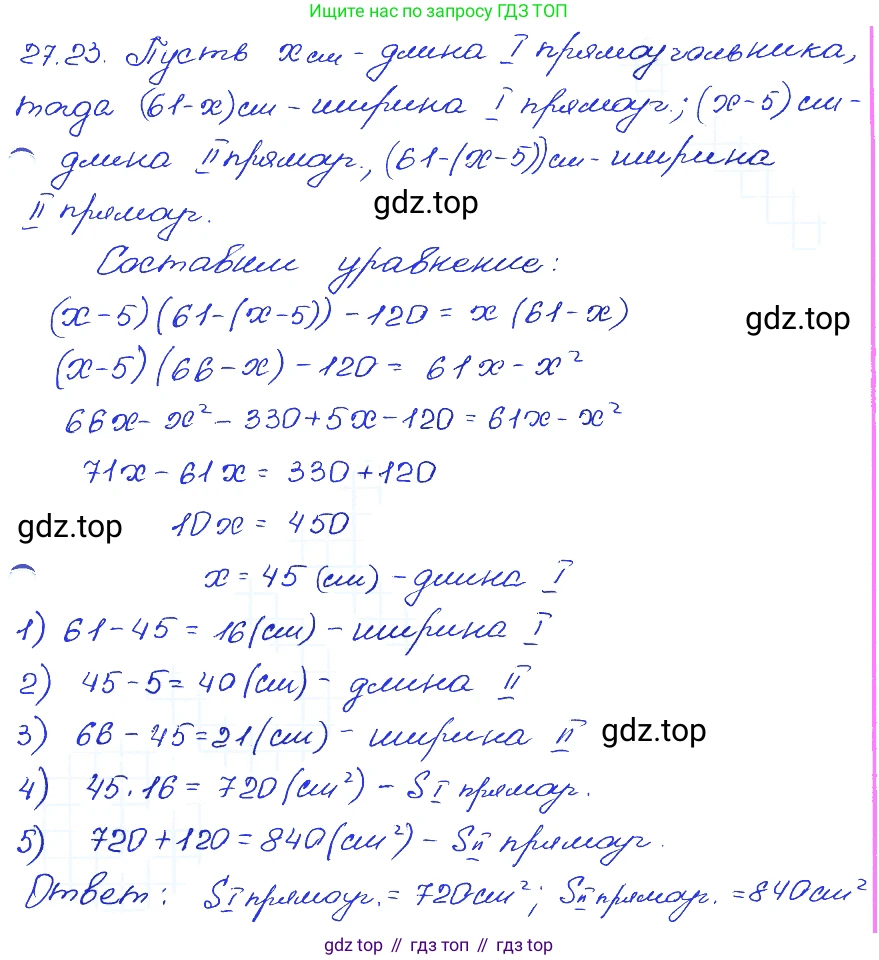 Ищите нас по запросу ГДЗ ТОП
27.23. Пусть x см - длина I прямоугольника,
тогда (61-x) см - ширина I прямоуг.; (x-5) см -
длина II прямоуг., (61-(x-5)) см - ширина
II прямоуг.
gdz.top
Составим уравнение:
(x-5)(61-(x-5)) - 120 = x (61-x)
gdz.top
(x-5)(66-x) - 120 = 61x - x²
66x - x² - 330 + 5x - 120 = 61x - x²
71x - 61x = 330 + 120
gdz.top 10x = 450
x = 45 (см) - длина I
1) 61 - 45 = 16 (см) - ширина I
2) 45 - 5 = 40 (см) - длина II
3) 66 - 45 = 21 (см) - ширина II
gdz.top
4) 45 · 16 = 720 (см²) - S I прямоуг.
5) 720 + 120 = 840 (см²) - S II прямоуг.
Ответ: S I прямоуг. = 720 см²; S II прямоуг. = 840 см²
gdz.top // гдз топ // gdz top